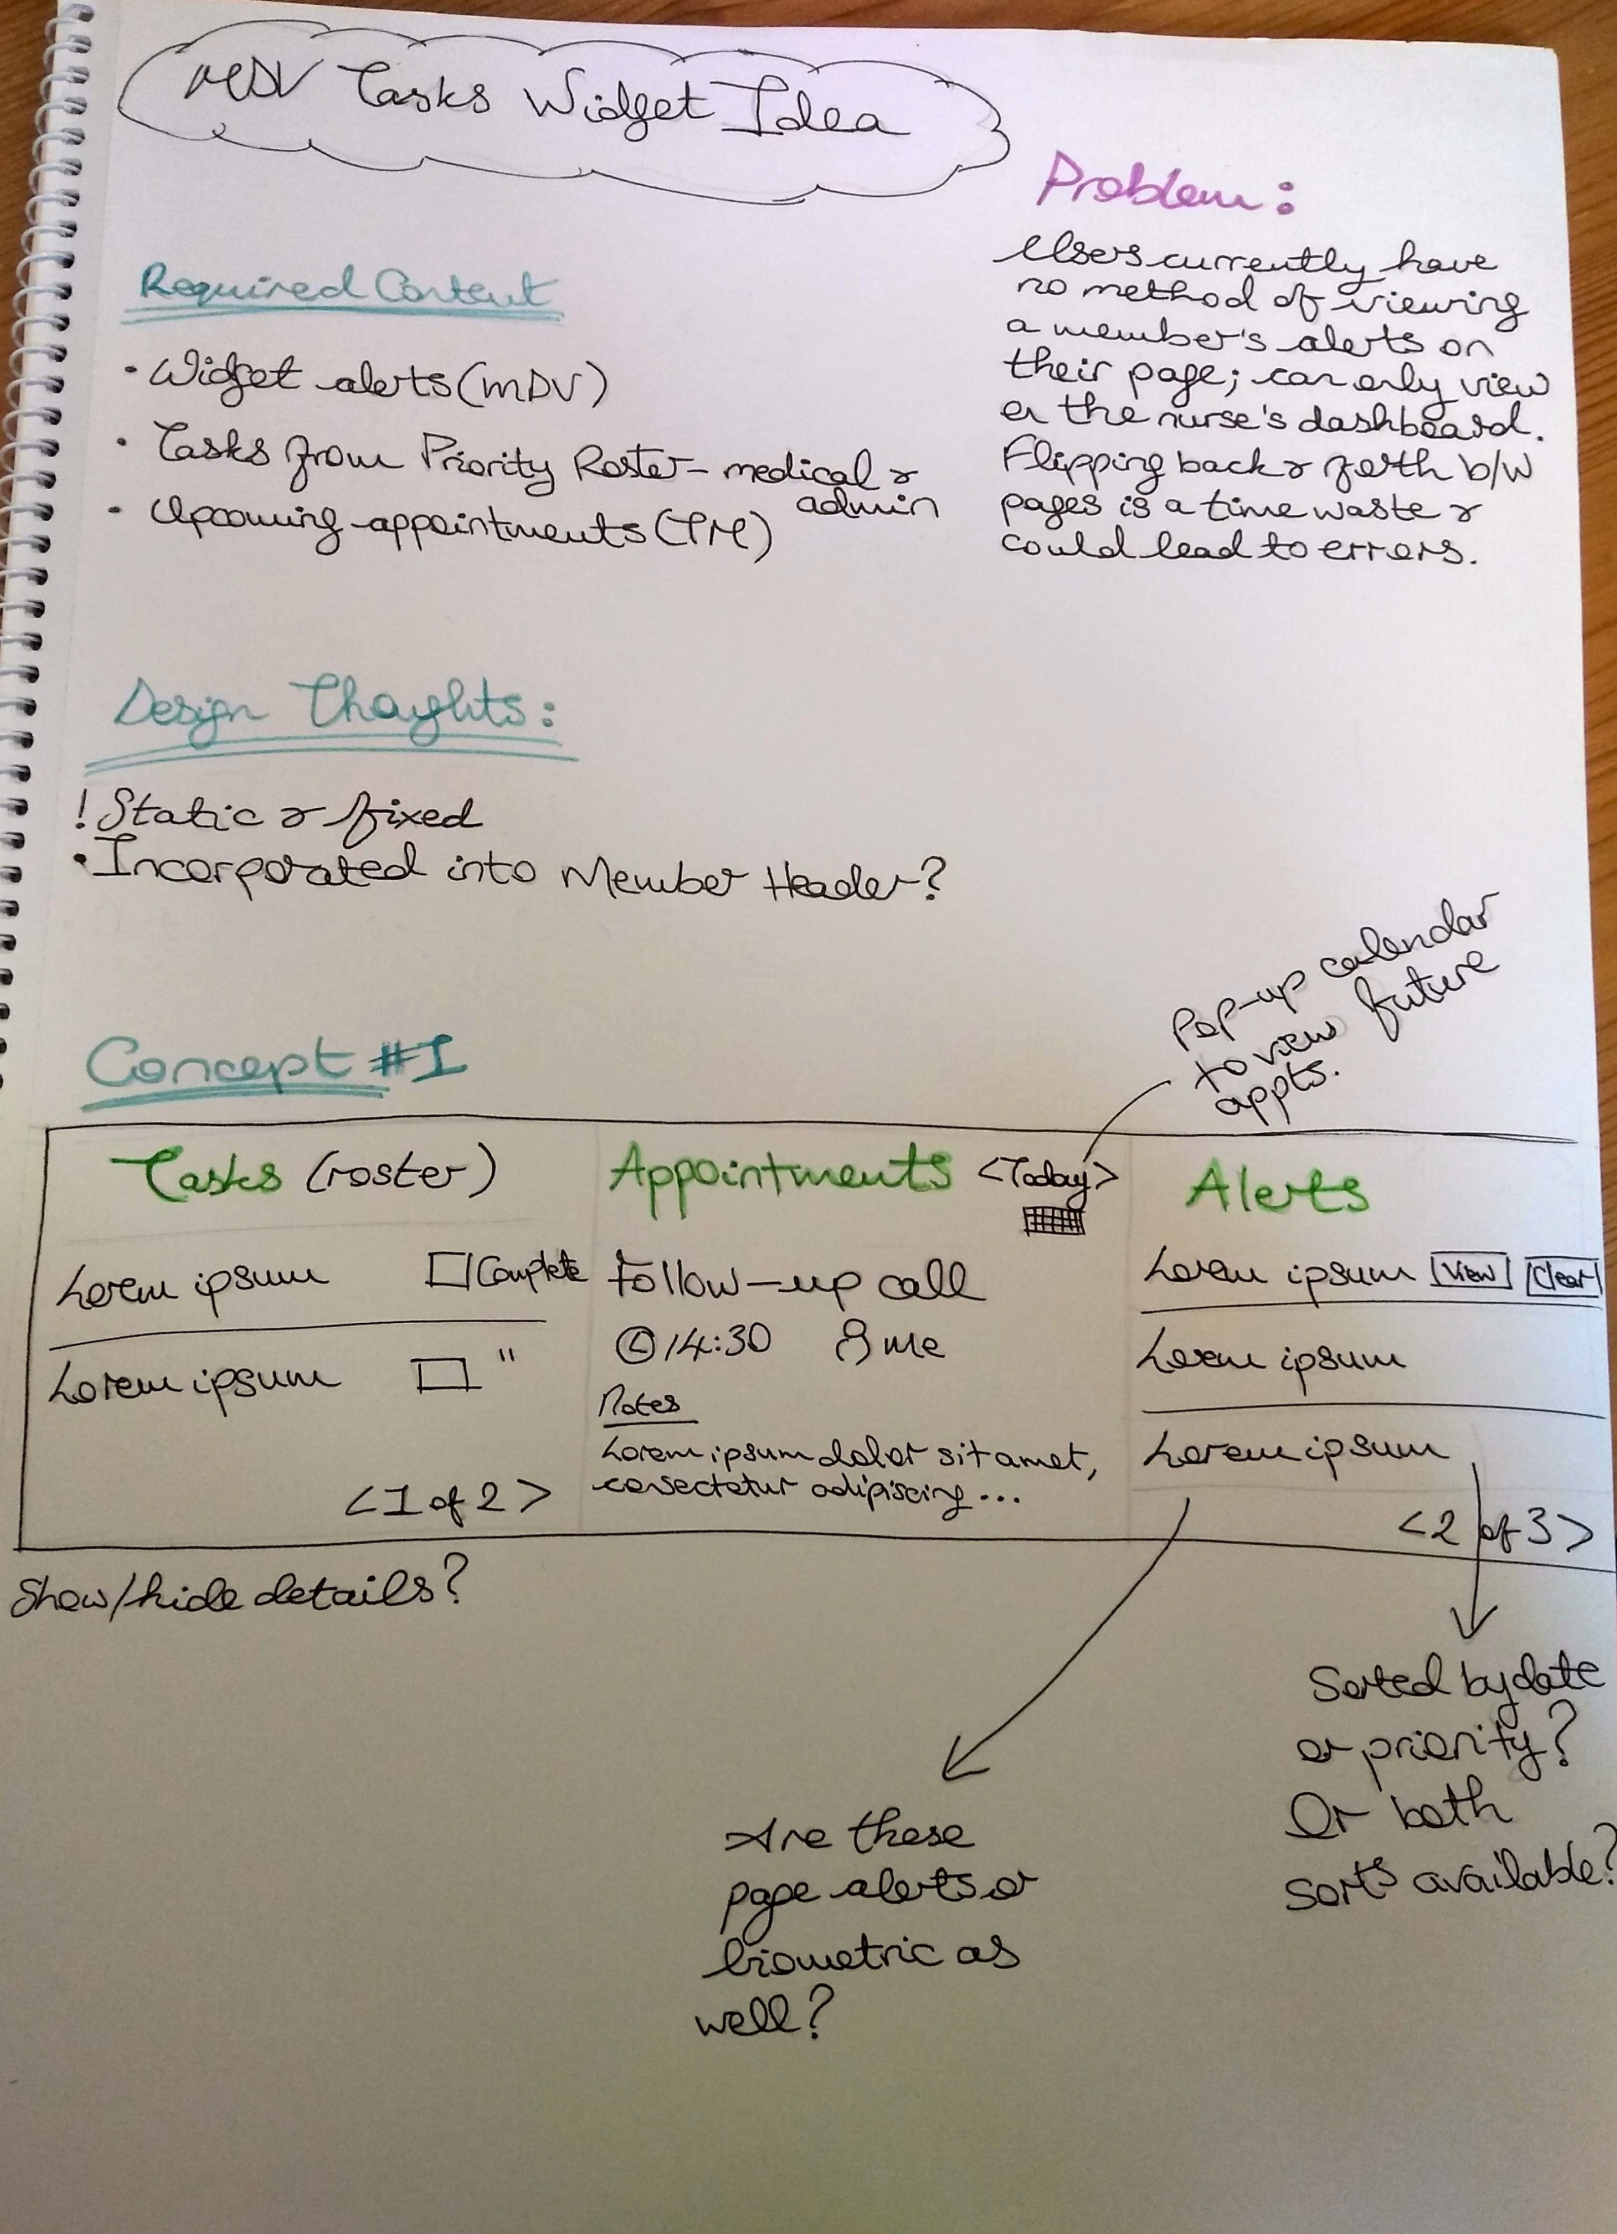 MDV Tasks Widget Idea
Problem:
Users currently have
no method of viewing
a member's alerts on
their page; can only view
on the nurse's dashboard.
Flipping back & forth b/w
pages is a time waste &
could lead to errors.
Required Content
• Widget alerts (MDV)
• Tasks from Priority Roster - medical &
admin
• Upcoming appointments (TM)
Design Thoughts:
! Static & fixed
• Incorporated into Member Header?
Pop-up calendar
to view future
appts.
Concept #1
Tasks (roster)
Lorem ipsum □ Complete
Lorem ipsum □ "
<1 of 2>
Appointments <Today>
Follow-up call
14:30 me
Notes
Lorem ipsum dolor sit amet,
consectetur adipiscing...
Alerts
Lorem ipsum View Clear
Lorem ipsum
Lorem ipsum
<2 of 3>
Show/hide details?
Are these
page alerts or
biometric as
well?
Sorted by date
or priority?
Or both
sorts available?